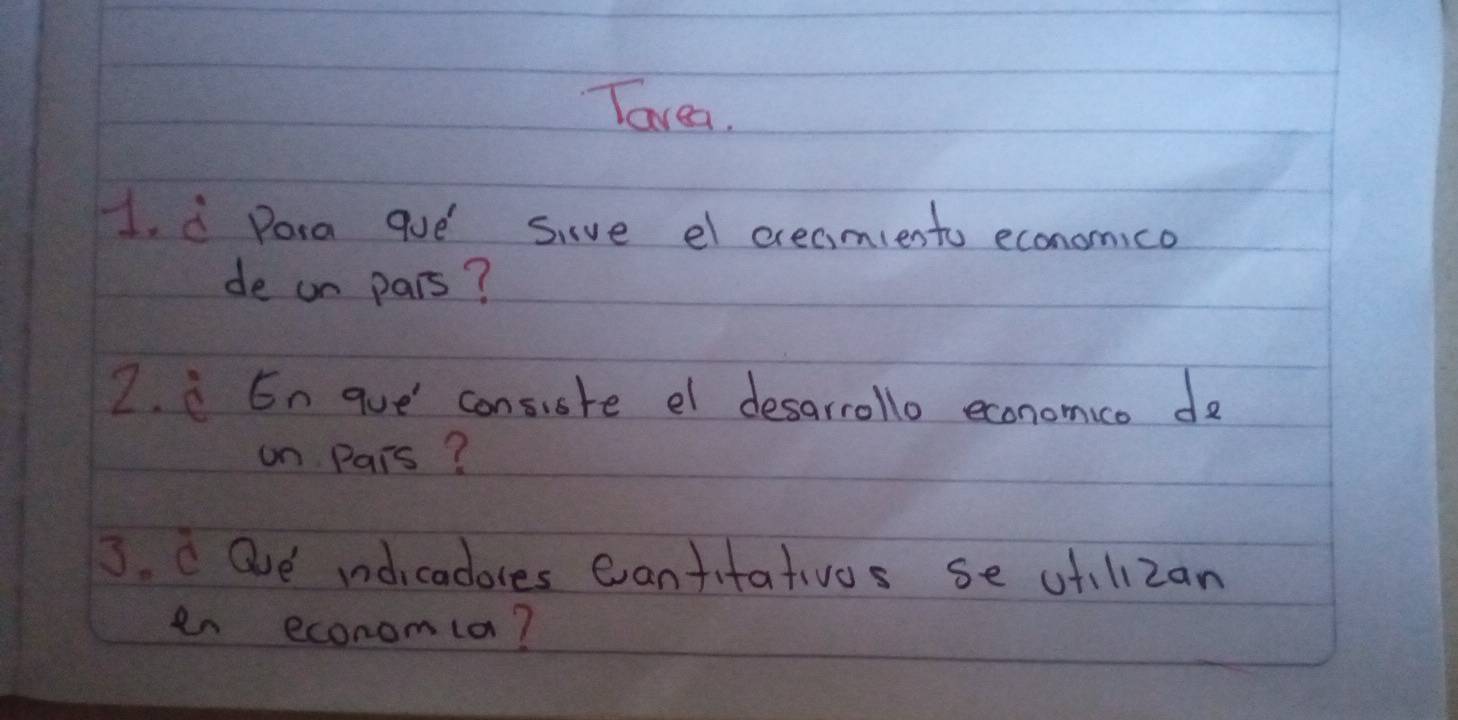 Tarea.
1. ¿ Para qué sirve el crecimiento economico
de un país?
2. ¿ En qué consiste el desarrollo economico de
un país?
3. ¿ Qué indicadores cuantitativos se utilizan
en economia?